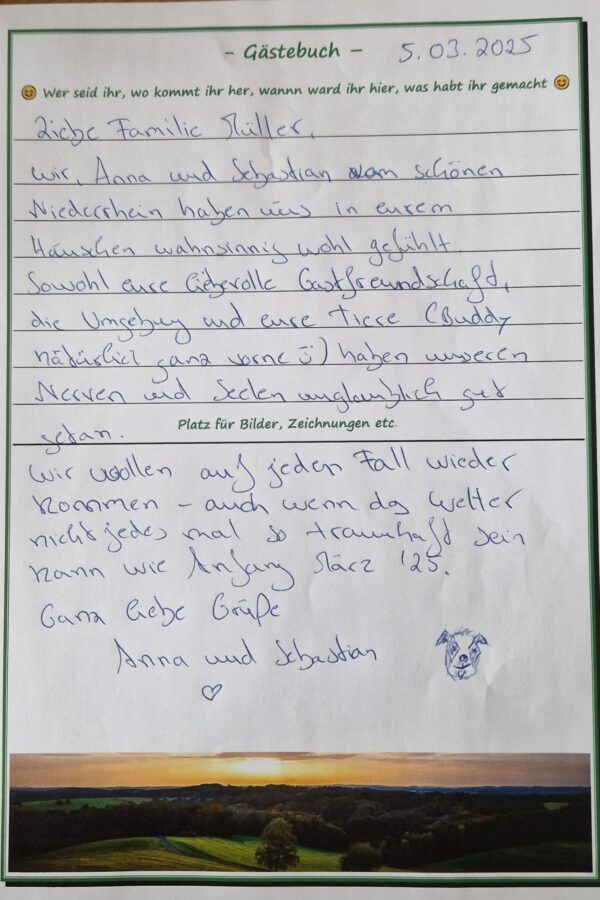 - Gästebuch -
5.03.2025
Wer seid ihr, wo kommt ihr her, wannn ward ihr hier, was habt ihr gemacht
Liebe Familie Müller,
wir, Anna und Sebastian vom schönen
Niederrhein haben uns in eurem
Häuschen wahnsinnig wohl gefühlt.
Sowohl eure liebevolle Gastfreundschaft,
die Umgebung und eure Tiere (Buddy
natürlich ganz vorne ü) haben unseren
Nerven und Seelen unglaublich gut
getan.
Platz für Bilder, Zeichnungen etc.
Wir wollen auf jeden Fall wieder
kommen - auch wenn das Wetter
nicht jedes mal so traumhaft sein
kann wie Anfang März '25.
Ganz liebe Grüße
Anna und Sebastian